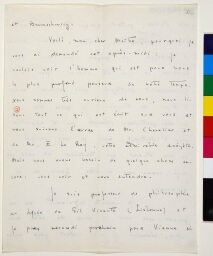 et Brunschvicg.
Voilà mon cher Maître, pourquoi je
vous ai demandé cet après-midi. je
voulais voir l'homme qui est pour nous
le plus profond penseur de notre temps.
vous sommes très anciens de vous, nous li-
sons tout ce qui est écrit sur vous et
nous suivons l'œuvre de Mr. Chevalier et
de Mr. E. Le Roy, votre admirable exégète.
Mais nous avons besoin de quelque chose en-
core: vous voir et vous entendre.
Je suis professeur de philosophie
au lycée de Gil Vicente (Lisbonne) et
je pars samedi prochain pour Vienne où